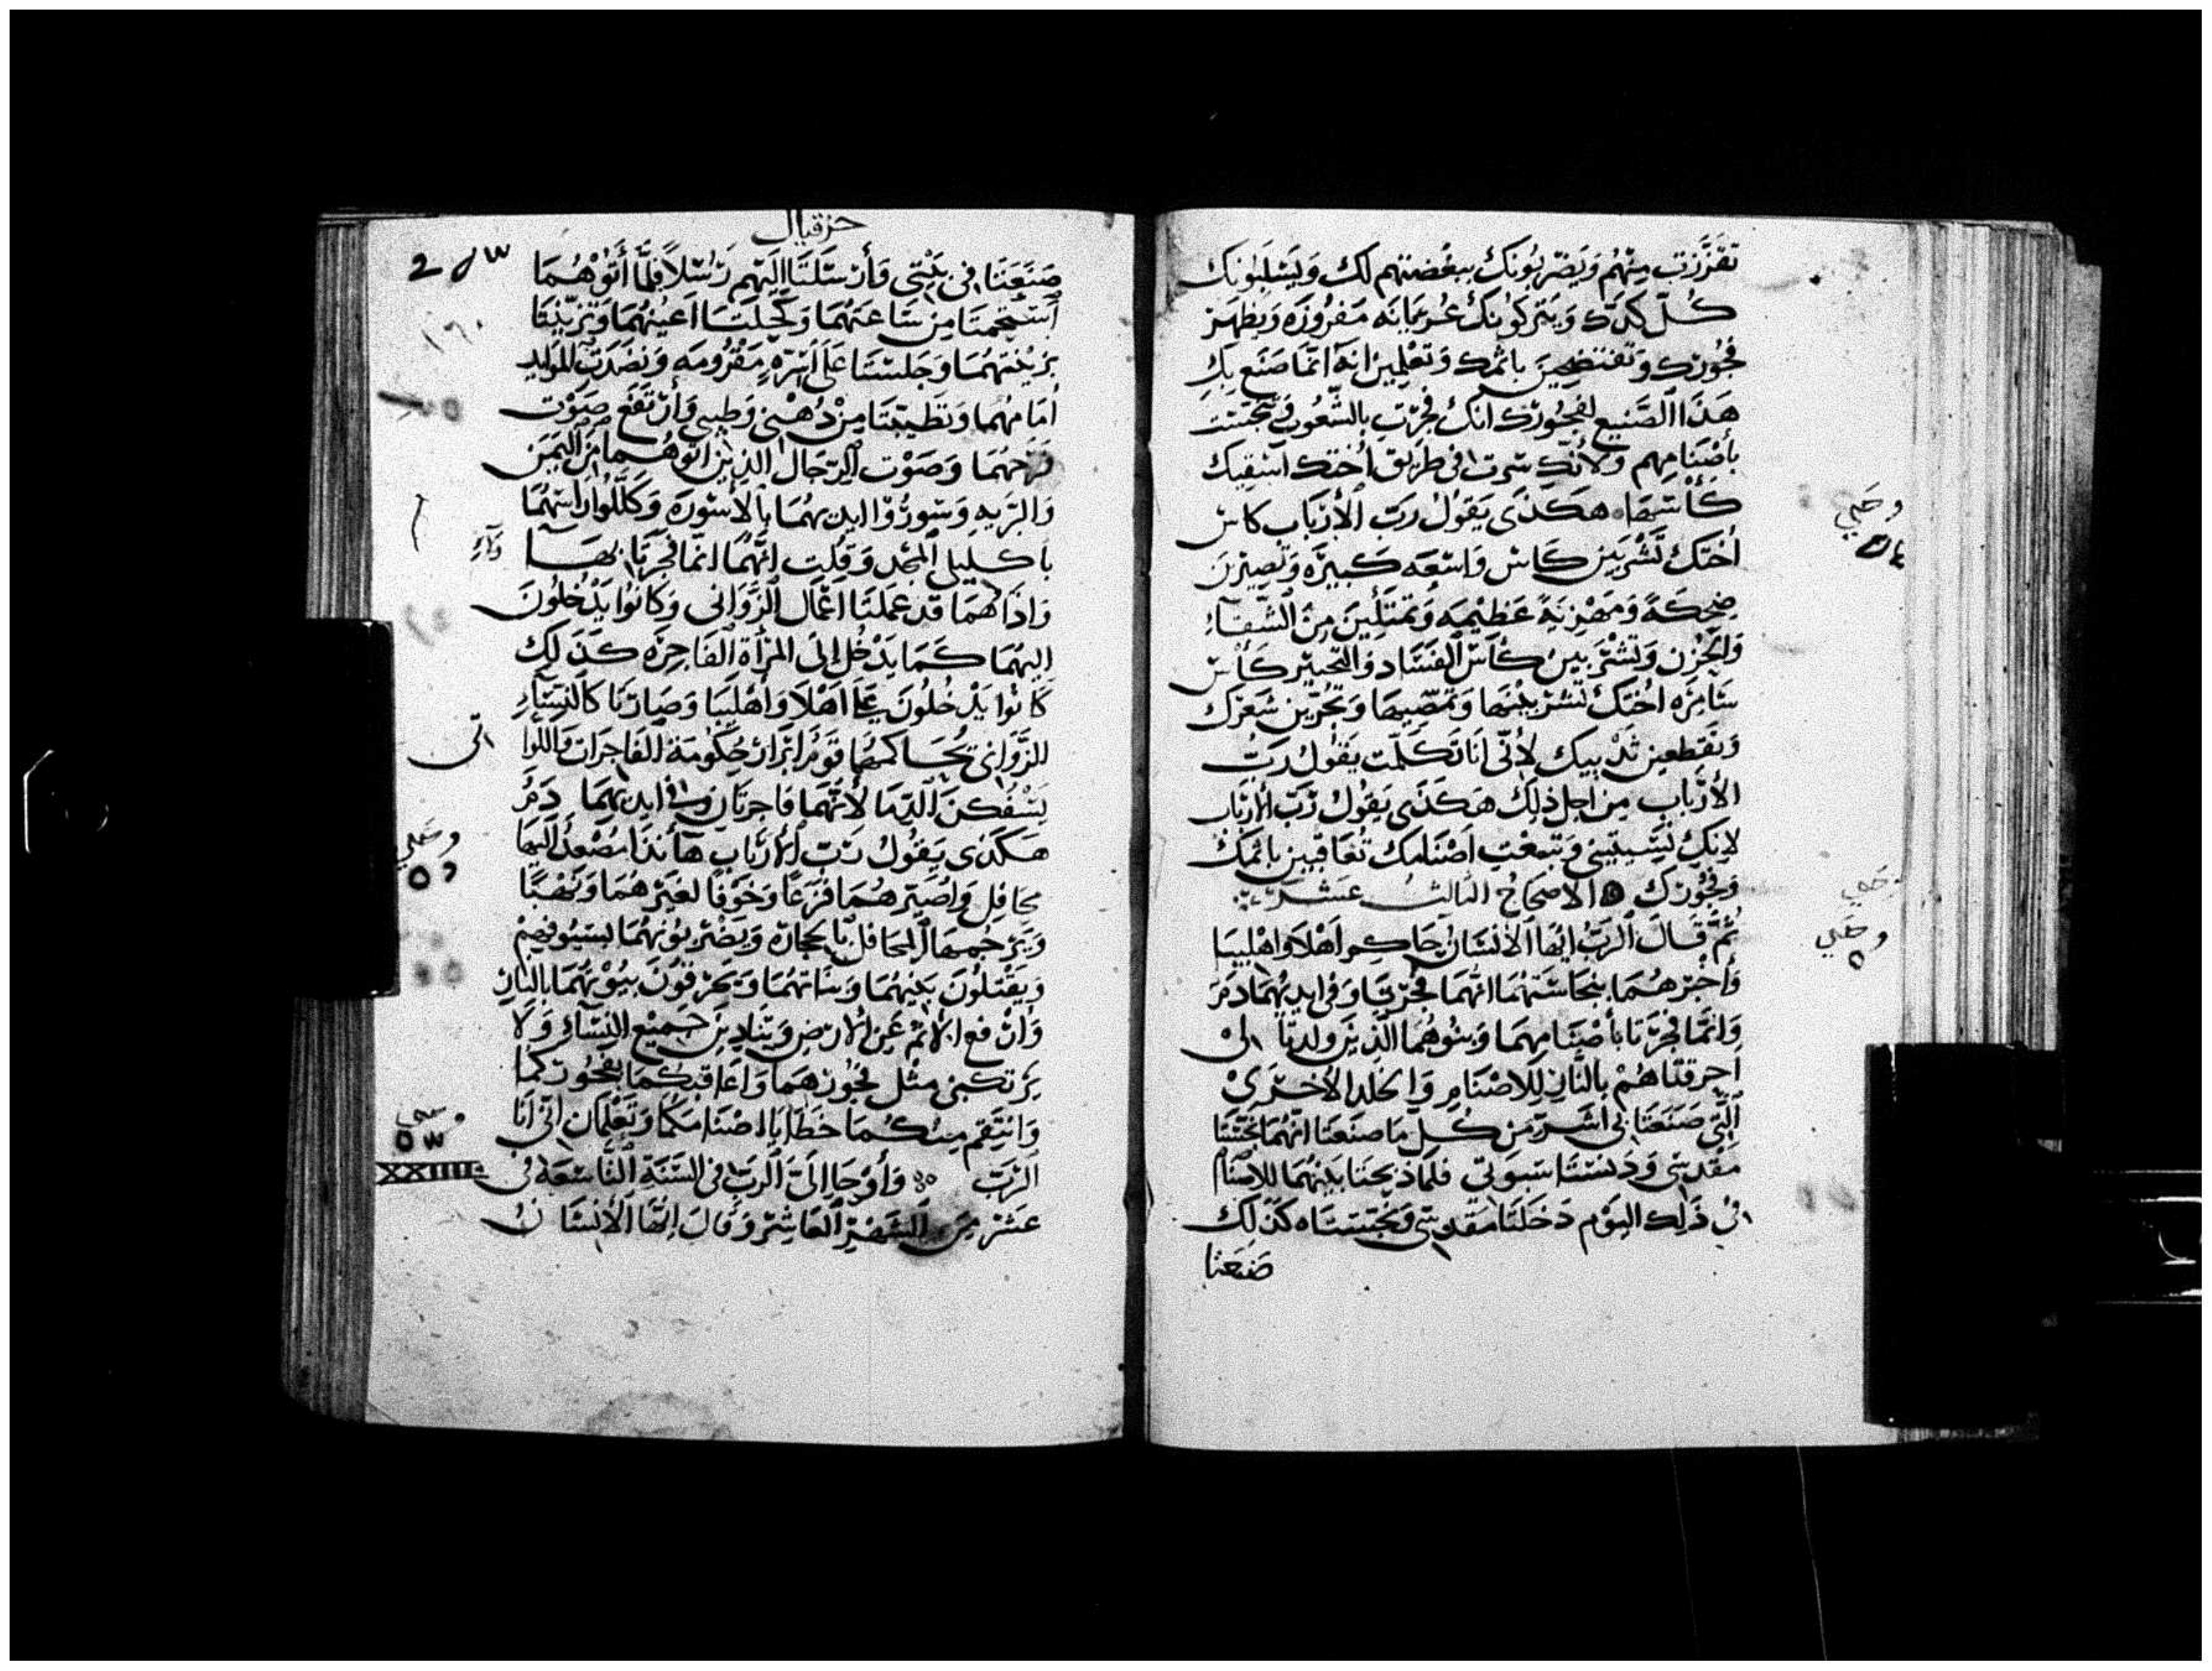 تقززت منهم ويضربونك ببغضتهم لك ويسلبونك
كل كدك ويتركونك عريانه مفروزه ويظهر
فجورك وتفتضحين باثمك وتعلمين انه انما صنع بك
هذا الصنيع لفجورك انك فجرت بالشعوب وتنجست
بأصنامهم ولأنك سرت في طريق أختك اسقيك
كأسها هكذى يقول رب الأرباب كاس
أختك تشربين كاس واسعه كبيره وتصيرين
ضحكة ومهزية عظيمه وتمتلين من الشقآء
والحزن وتشربين كأس الفساد والتحير كأس
سامره اختك تشربينها وتمصيها وتجزين شعرك
وتقطعين ثدييك لأني انا تكلمت يقول رب
الأرباب من اجل ذلك هكذى يقول رب الارباب
لانك نسيتيني وتبعت اصنامك تعاقبين باثمك
وفجورك الاصحاح الثالث عشر
ثم قال الرب ايها الأنسان حاكم اهلا واهليبا
وأخبرهما بنجاستهما انهما فجرتا وفي ايديهما دم
وانما فجرتا بأصنامهما وبنوهما الذين ولدتا الى
احرقتاهم بالنار للاصنام والخلد الأخرى
التي صنعتا بي اشر من كل ما صنعتا انهما نجستا
مقدسي ودنستا سبوتي فلما ذبحتا بنيهما للاصنام
في ذلك اليوم دخلتا مقدسي ونجستاه كذلك
صنعتا
وحلي
٥٤
وحلي
٥
حزقيال
٢٨٣
صنعتا في بيتي وأرسلتا اليهم رسلا فلما أتوهما
استحمتا من ساعتهما وكحلتا اعينهما وتزينتا
بزينتهما وجلستا على اسره مقرومه ونضدت الموايد
أمامهما وتطيبتا من دهني وطيبي وأرتفع صوت
فرحهما وصوت الرجال الذين اتوهما من اليمن
والبريه وسوروا ايديهما بالأسوره وكللوا راسهما
باكليل المجد وقلت انهما انما فجرتا بهآ
واذا هما قد عملتا اعمال الزواني وكانوا يدخلون
اليهما كما يدخل إلى المرأة الفاجره كذلك
كانوا يدخلون على اهلا واهليبا وصارتا كالنسآء
الزواني يحاكمهما قوم ابرار حكومة الفاجرات واللوا
يسفكن الدما لأنهما فاجرتان وفي ايديهما دم
هكذى يقول رب الارباب هآنذا مصعد اليها
محافل واصيرهما فزعا وخوفا لغيرهما ونهبا
ويرجمها المحافل بالحجاره ويضربونهما بسيوفهم
ويقتلون بنيهما وبناتهما ويحرقون بيوتهما بالنار
وارفع الاثم عن الارض ويتادبن جميع النسآء ولا
يرتكبن مثل فجورهما واعاقبكما بفجوركما
وانتقم منكما خطايا اصنامكما وتعلمان اني انا
الرب وأوحا الى الرب في السنة التاسعة في
عشر من الشهر العاشر وقال ايها الأنسان